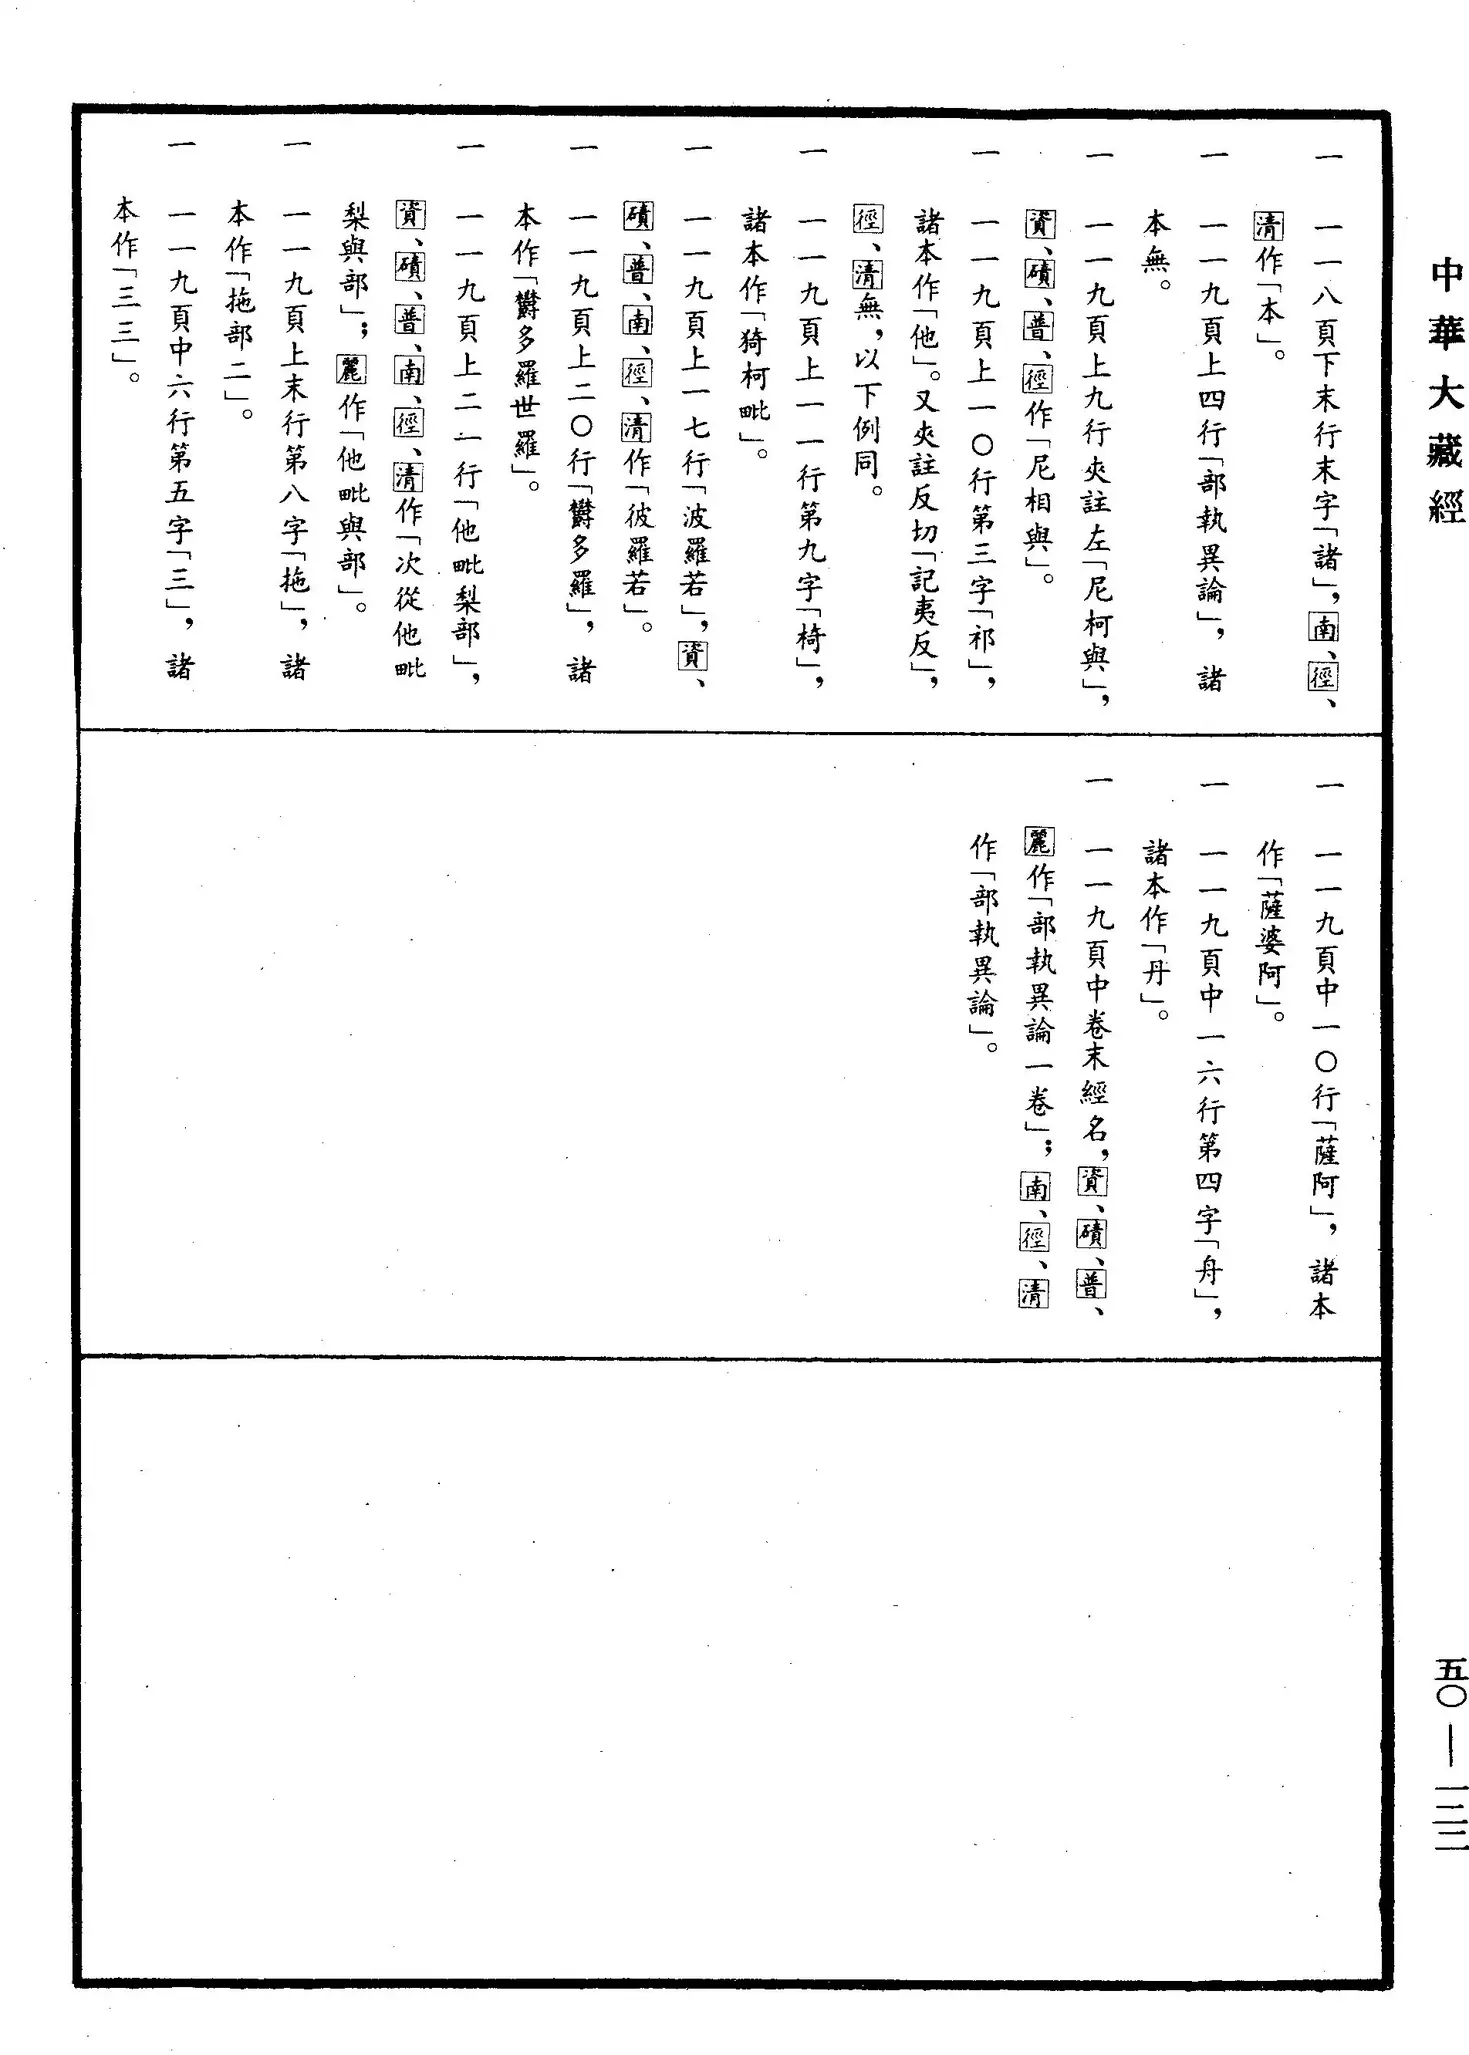 中華大藏經
一 一一八頁下末行末字「諸」，南、徑、
清作「本」。
一 一一九頁上四行「部執異論」，諸
本無。
一 一一九頁上九行夾註左「尼柯與」，
資、磧、普、徑作「尼相與」。
一 一一九頁上一〇行第三字「祁」，
諸本作「他」。又夾註反切「記夷反」，
徑、清無，以下例同。
一 一一九頁上一一行第九字「椅」，
諸本作「猗柯毗」。
一 一一九頁上一七行「波羅若」，資、
磧、普、南、徑、清作「彼羅若」。
一 一一九頁上二〇行「欝多羅」，諸
本作「欝多羅世羅」。
一 一一九頁上二一行「他毗梨部」，
資、磧、普、南、徑、清作「次從他毗
梨與部」；麗作「他毗與部」。
一 一一九頁上末行第八字「拖」，諸
本作「拖部二」。
一 一一九頁中六行第五字「三」，諸
本作「三三」。
一 一一九頁中一〇行「薩阿」，諸本
作「薩婆阿」。
一 一一九頁中一六行第四字「舟」，
諸本作「丹」。
一 一一九頁中卷末經名，資、磧、普、
麗作「部執異論一卷」；南、徑、清
作「部執異論」。
五〇—一二二